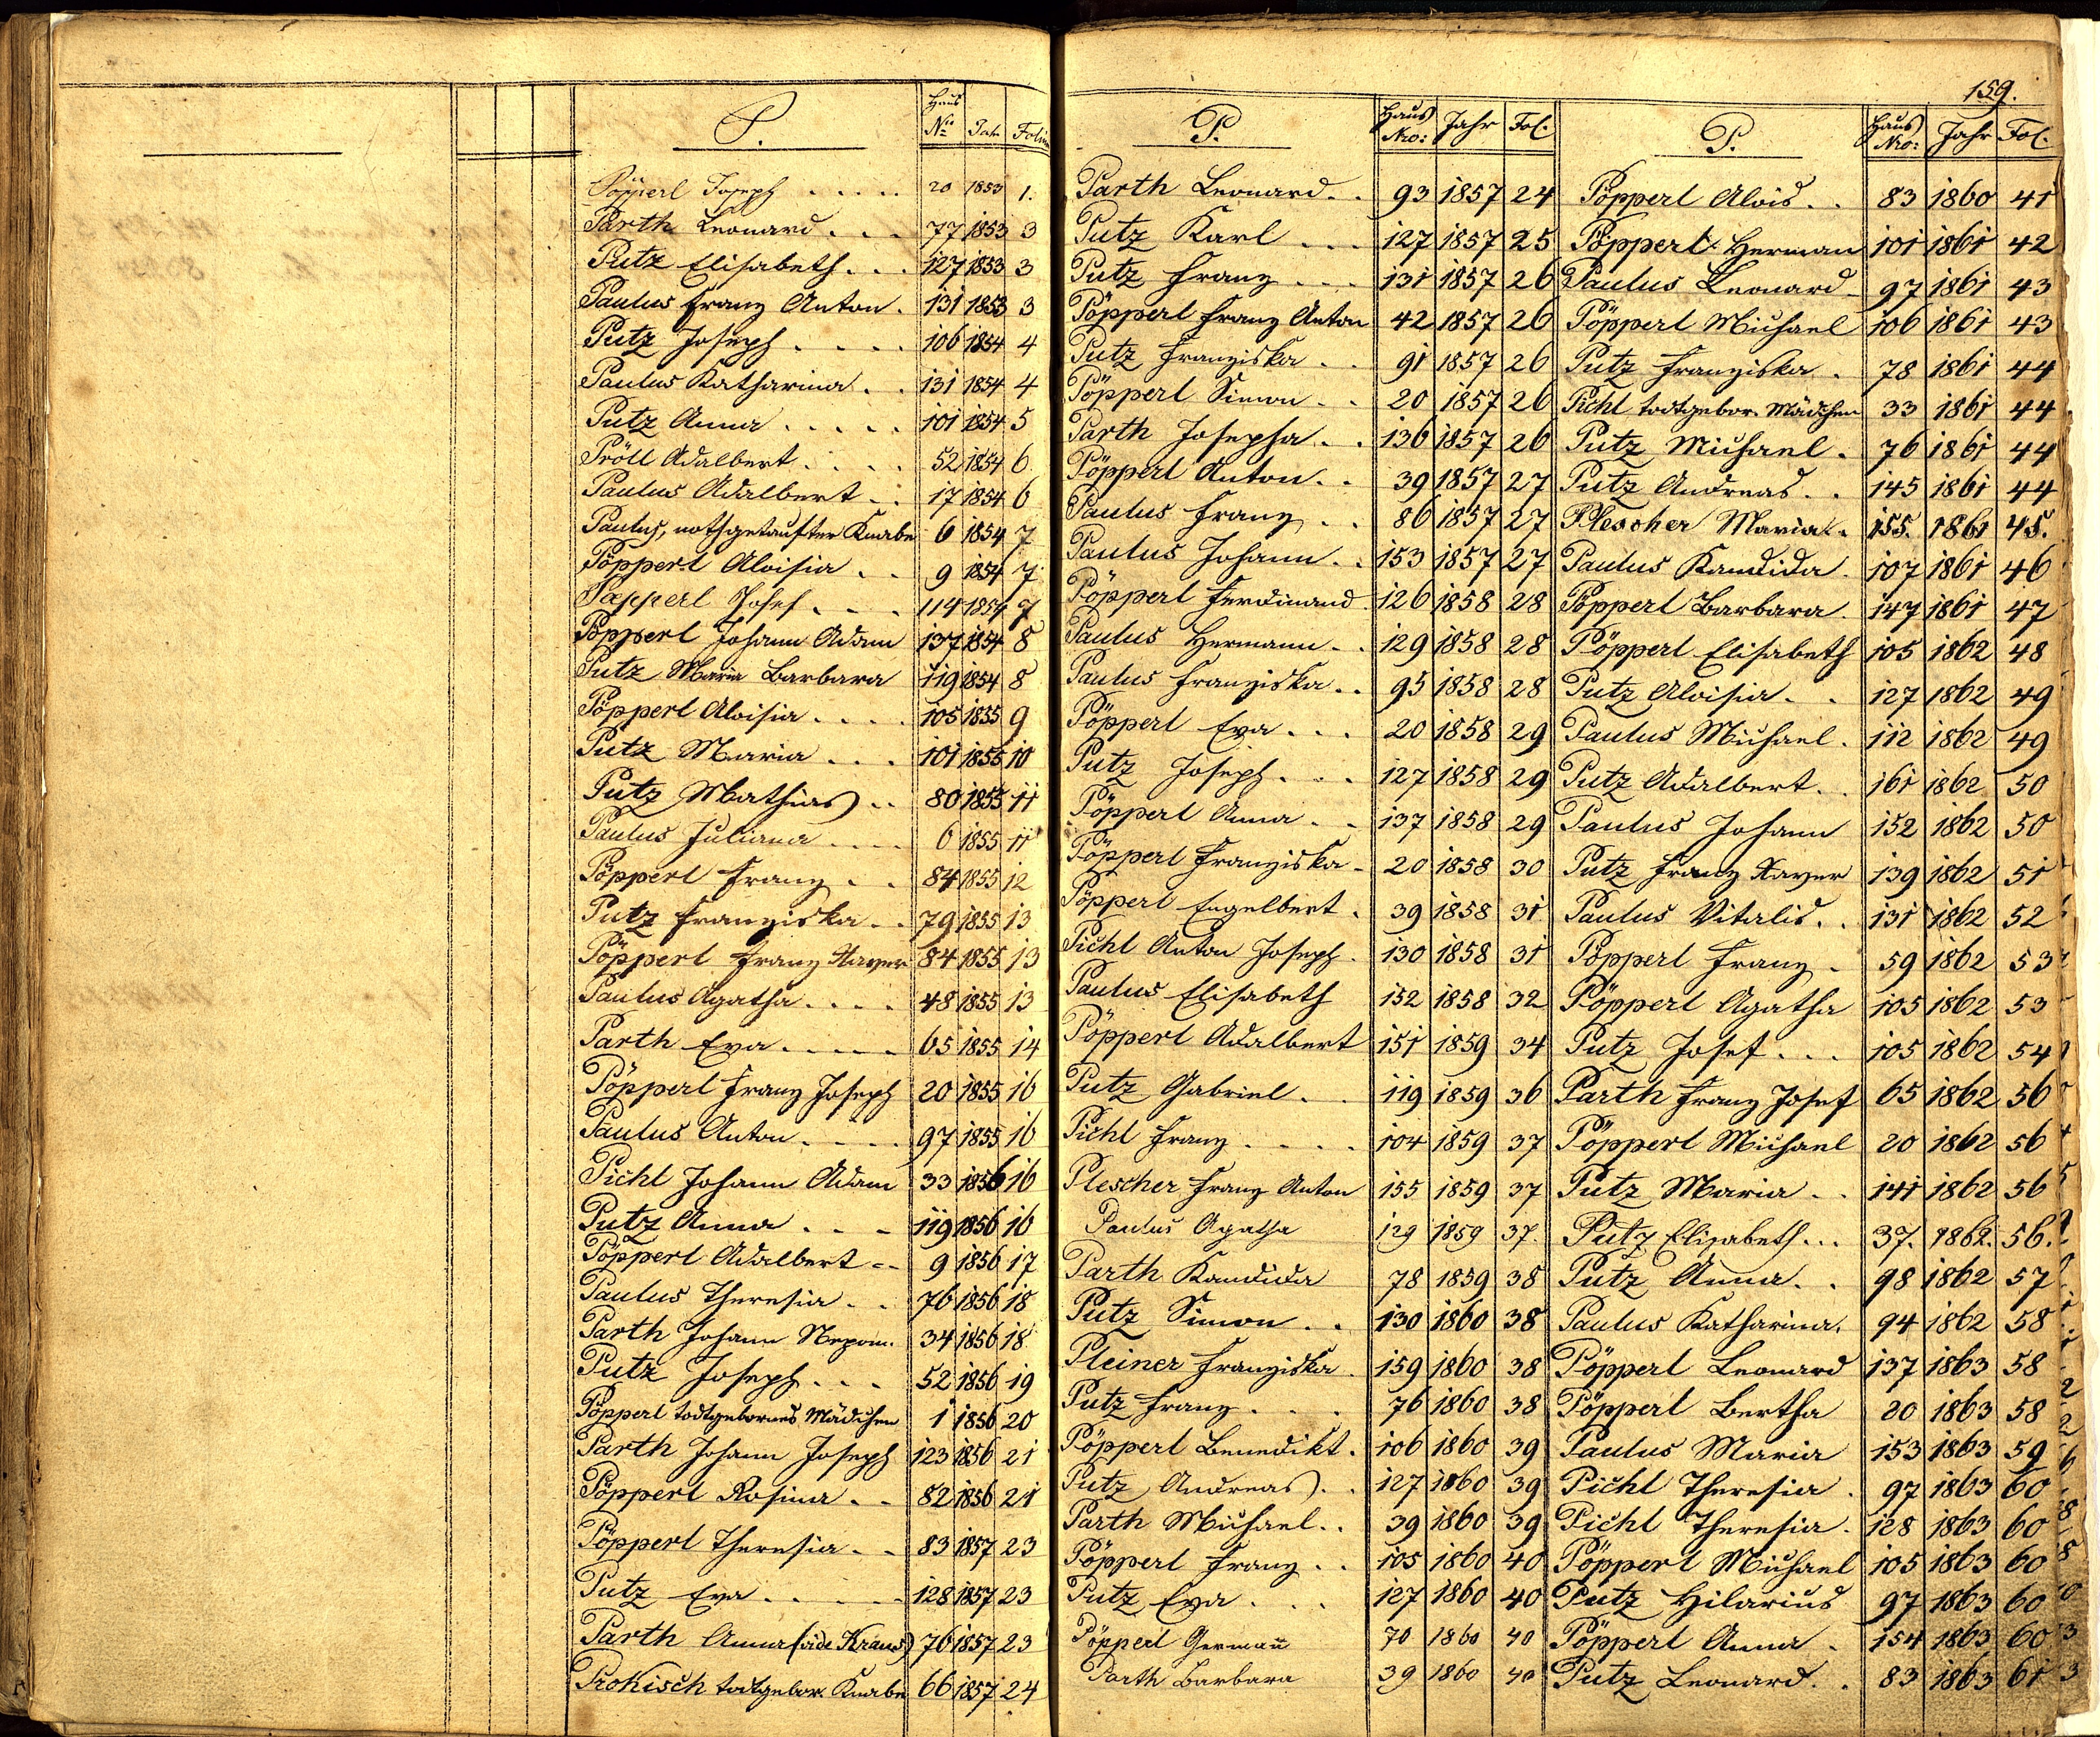 159.
P.
Haus Nro Jahr Folium
Pöpperl Joseph . . . . . 20 1853 1.
Parth Leonard . . . 77 1853 3
Putz Elisabeth . . . 127 1853 3
Paulus Franz Anton . 131 1853 3
Putz Joseph . . . . 106 1854 4
Paulus Katharina . . 131 1854 4
Putz Anna . . . . . 101 1854 5
Pröll Adalbert . . . . 52 1854 6
Paulus Adalbert . . 17 1854 6
Paulus, nothgetaufter Knabe 6 1854 7
Pöpperl Aloisia . . 9 1854 7
Pœpperl Josef . . . 114 1854 7
Pöpperl Johann Adam 137 1854 8
Putz Maria Barbara 119 1854 8
Pöpperl Aloisia . . . . 105 1855 9
Putz Maria . . . 101 1855 10
Putz Mathias . . 80 1855 11
Paulus Juliana . . . . 6 1855 11
Pöpperl Franz . . 84 1855 12
Putz Franziska . . 79 1855 13
Pöpperl Franz Xaver 84 1855 13
Paulus Agatha . . . . 48 1855 13
Parth Eva . . . . . 65 1855 14
Pöpperl Franz Joseph 20 1855 16
Paulus Anton . . . . 97 1855 16
Pichl Johann Adam 33 1856 16
Putz Anna . . . 119 1856 16
Pöpperl Adalbert . . 9 1856 17
Paulus Theresia . . 76 1856 18
Parth Johann Nepom. 34 1856 18
Putz Joseph . . . 52 1856 19
Pöpperl todtgebornes Mädchen 1 1856 20
Parth Johann Joseph 123 1856 21
Pöpperl Rosina . . 82 1856 21
Pöpperl Theresia . . 83 1857 23
Putz Eva . . . . . 128 1857 23
Parth Anna (vide Kraus) 76 1857 23
Prokisch todtgebor. Knabe 66 1857 24
P.
Haus Nro: Jahr Fol.
Parth Leonard . . 93 1857 24
Putz Karl . . . 127 1857 25
Putz Franz . . . 131 1857 26
Pöpperl Franz Anton 42 1857 26
Putz Franziska . . 91 1857 26
Pöpperl Simon . . 20 1857 26
Parth Josepha . . 136 1857 26
Pöpperl Anton . . 39 1857 27
Paulus Franz . . 86 1857 27
Paulus Johann . . 153 1857 27
Pöpperl Ferdinand . 126 1858 28
Paulus Hermann . . 129 1858 28
Paulus Franziska . . 95 1858 28
Pöpperl Eva . . . 20 1858 29
Putz Joseph . . . 127 1858 29
Pöpperl Anna . . 137 1858 29
Pöpperl Franziska . 20 1858 30
Pöpperl Engelbert . 39 1858 31
Pichl Anton Joseph . 130 1858 31
Paulus Elisabeth 152 1858 32
Pöpperl Adalbert 151 1859 34
Putz Gabriel . . 119 1859 36
Pichl Franz . . . . 104 1859 37
Plescher Franz Anton 155 1859 37
Paulus Agatha 129 1859 37.
Parth Kandida 78 1859 38
Putz Simon . . 130 1860 38
Pleiner Franziska . 159 1860 38
Putz Franz . . . . 76 1860 38
Pöpperl Benedikt . 106 1860 39
Putz Andreas . . 127 1860 39
Parth Michael . . 39 1860 39
Pöpperl Franz . . 105 1860 40
Putz Eva . . . 127 1860 40
Pöpperl Germañ 70 1860 40
Parth Barbara 39 1860 40
P.
Haus Nro: Jahr Fol.
Pöpperl Alois . . 83 1860 41
Pöpperl Herman 101 1861 42
Paulus Leonard . 97 1861 43
Pöpperl Michael 106 1861 43
Putz Franziska . 78 1861 44
Pichl todtgebor. Mädchen 33 1861 44
Putz Michael . 76 1861 44
Putz Andreas . . 145 1861 44
Plescher Maria . . 155. 1861 45.
Paulus Kandida . 107 1861 46
Pöpperl Barbara . 147 1861 47
Pöpperl Elisabeth 105 1862 48
Putz Aloisia . . 127 1862 49
Paulus Michael . 112 1862 49
Putz Adalbert . . 161 1862 50
Paulus Johann 152 1862 50
Putz Franz Xaver 139 1862 51
Paulus Vitalis . . 131 1862 52
Pöpperl Franz . 59 1862 53
Pöpperl Agatha 105 1862 53
Putz Josef . . . 105 1862 54
Parth Franz Josef 65 1862 56
Pöpperl Michael 20 1862 56
Putz Maria . . 141 1862 56
Putz Elisabeth . . . 37. 1862. 56.
Putz Anna . . 98 1862 57
Paulus Katharina . 94 1862 58
Pöpperl Leonard 137 1863 58
Pöpperl Bertha 20 1863 58
Paulus Maria 153 1863 59
Pichl Theresia . 97 1863 60
Pichl Theresia . 128 1863 60
Pöpperl Michael 105 1863 60
Putz Hilarius 97 1863 60
Pöpperl Anna . 154 1863 60
Putz Leonard . . 83 1863 61